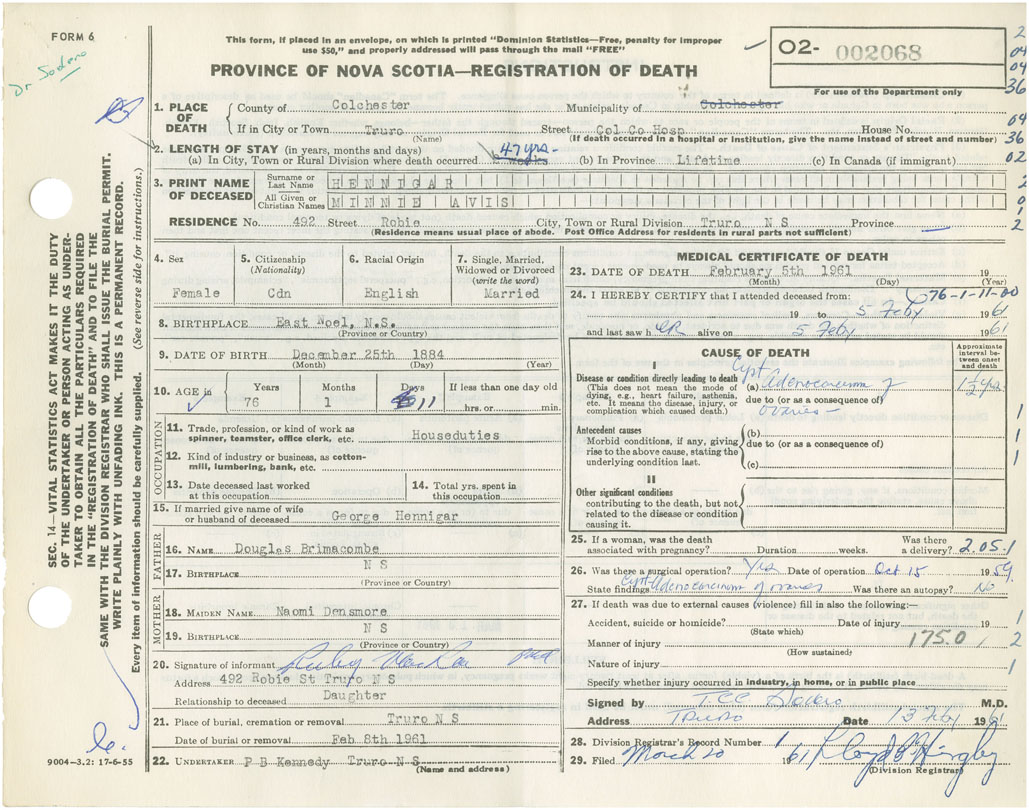 FORM 6
Dr Sodero
This form, if placed in an envelope, on which is printed "Dominion Statistics—Free, penalty for improper
use $50," and properly addressed will pass through the mail "FREE"
PROVINCE OF NOVA SCOTIA—REGISTRATION OF DEATH
O2- 002068
For use of the Department only
2
04
04
36
04
36
02
2
0
1
2
SEC. 14—VITAL STATISTICS ACT MAKES IT THE DUTY
OF THE UNDERTAKER OR PERSON ACTING AS UNDER-
TAKER TO OBTAIN ALL THE PARTICULARS REQUIRED
IN THE "REGISTRATION OF DEATH" AND TO FILE THE
SAME WITH THE DIVISION REGISTRAR WHO SHALL ISSUE THE BURIAL PERMIT.
WRITE PLAINLY WITH UNFADING INK. THIS IS A PERMANENT RECORD.
Every item of information should be carefully supplied. (See reverse side for instructions.)
9004—3.2: 17-6-55
1. PLACE OF DEATH County of Colchester Municipality of Colchester
If in City or Town Truro Street Col Co Hosp House No.
(Name) (If death occurred in a hospital or institution, give the name instead of street and number)
2. LENGTH OF STAY (in years, months and days)
(a) In City, Town or Rural Division where death occurred 47 yrs- (b) In Province Lifetime (c) In Canada (if immigrant)
3. PRINT NAME OF DECEASED
Surname or Last Name HENNIGAR
All Given or Christian Names MINNIE AVIS
RESIDENCE No. 492 Street Robie City, Town or Rural Division Truro N S Province
(Residence means usual place of abode. Post Office Address for residents in rural parts not sufficient)
4. Sex
Female
5. Citizenship
(Nationality)
Cdn
6. Racial Origin
English
7. Single, Married,
Widowed or Divorced
(write the word)
Married
8. BIRTHPLACE East Noel, N.S.
(Province or Country)
9. DATE OF BIRTH December 25th 1884
(Month) (Day) (Year)
10. AGE in Years Months Days If less than one day old
76 1 11 hrs. or min.
OCCUPATION
11. Trade, profession, or kind of work as
spinner, teamster, office clerk, etc. Houseduties
12. Kind of industry or business, as cotton-
mill, lumbering, bank, etc.
13. Date deceased last worked
at this occupation
14. Total yrs. spent in
this occupation
15. If married give name of wife
or husband of deceased George Hennigar
FATHER
16. NAME Douglas Brimacombe
17. BIRTHPLACE N S
(Province or Country)
MOTHER
18. MAIDEN NAME Naomi Densmore
19. BIRTHPLACE N S
(Province or Country)
20. Signature of informant Ruby
Address 492 Robie St Truro N S
Relationship to deceased Daughter
21. Place of burial, cremation or removal Truro N S
Date of burial or removal Feb 8th 1961
22. UNDERTAKER P B Kennedy Truro N S
(Name and address)
MEDICAL CERTIFICATE OF DEATH
23. DATE OF DEATH February 5th 1961 19
(Month) (Day) (Year)
76-1-11-00
24. I HEREBY CERTIFY that I attended deceased from:
19 to 5 Feby 1961
and last saw her alive on 5 Feby 1961
CAUSE OF DEATH
Approximate
interval be-
tween onset
and death
I
Disease or condition directly leading to death
(This does not mean the mode of
dying, e.g., heart failure, asthenia,
etc. It means the disease, injury, or
complication which caused death.)
(a) Cyst Adenocarcinoma of 1½ yrs
due to (or as a consequence of)
ovaries -
Antecedent causes
Morbid conditions, if any, giving
rise to the above cause, stating the
underlying condition last.
(b)
due to (or as a consequence of)
(c)
1
1
1
II
Other significant conditions
contributing to the death, but not
related to the disease or condition
causing it.
25. If a woman, was the death
associated with pregnancy? Duration weeks. Was there
a delivery? 2.05.1
26. Was there a surgical operation? Yes Date of operation Oct 15 1959
State findings Cyst-Adenocarcinoma of ovaries Was there an autopsy? No
27. If death was due to external causes (violence) fill in also the following:
Accident, suicide or homicide? Date of injury 19 1
(State which)
Manner of injury 175.0 1 2
(How sustained)
Nature of injury 1
Specify whether injury occurred in industry, in home, or in public place
Signed by TCC Sodero M.D.
Address TRURO Date 13 Feby 1961
28. Division Registrar's Record Number 1
29. Filed March 20 1961 Lloyd
(Division Registrar)